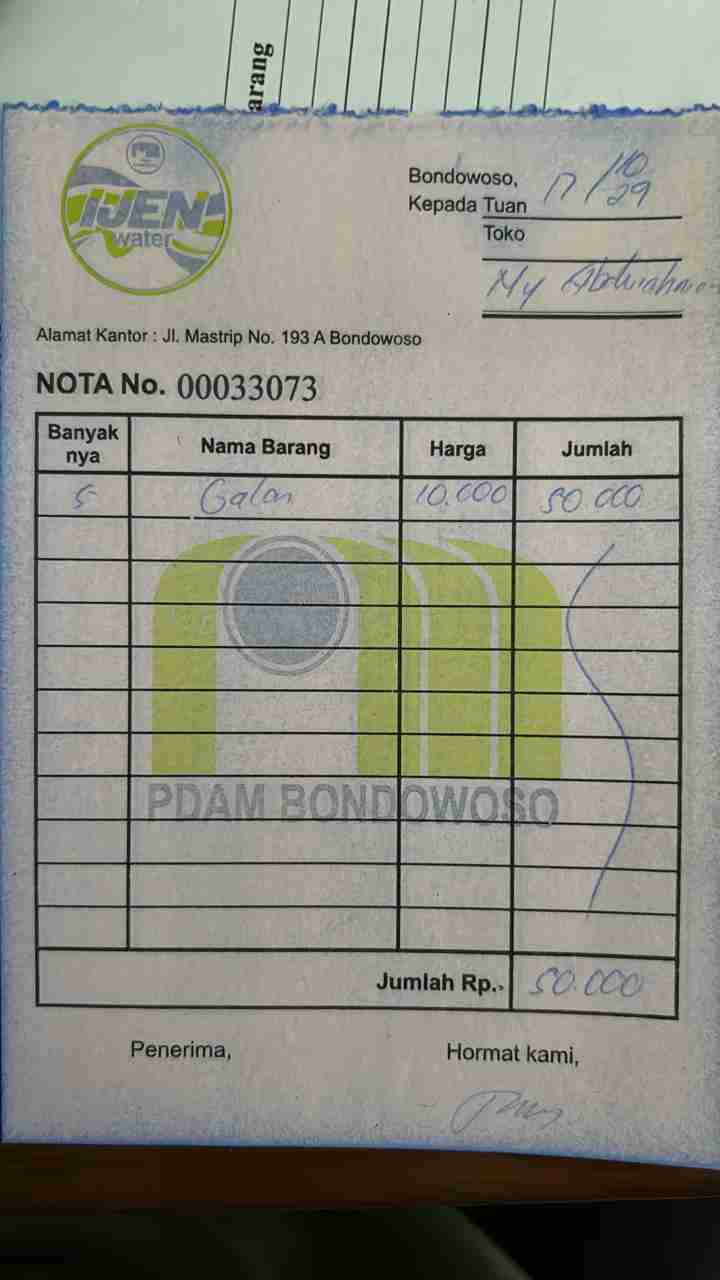 arang
IJEN
water
Bondowoso, 17/10
Kepada Tuan
Toko
My
Alamat Kantor : Jl. Mastrip No. 193 A Bondowoso
NOTA No. 00033073
Banyak nya Nama Barang Harga Jumlah
5 Galon 10.000 50.000
PDAM BONDOWOSO
Jumlah Rp. 50.000
Penerima, Hormat kami,